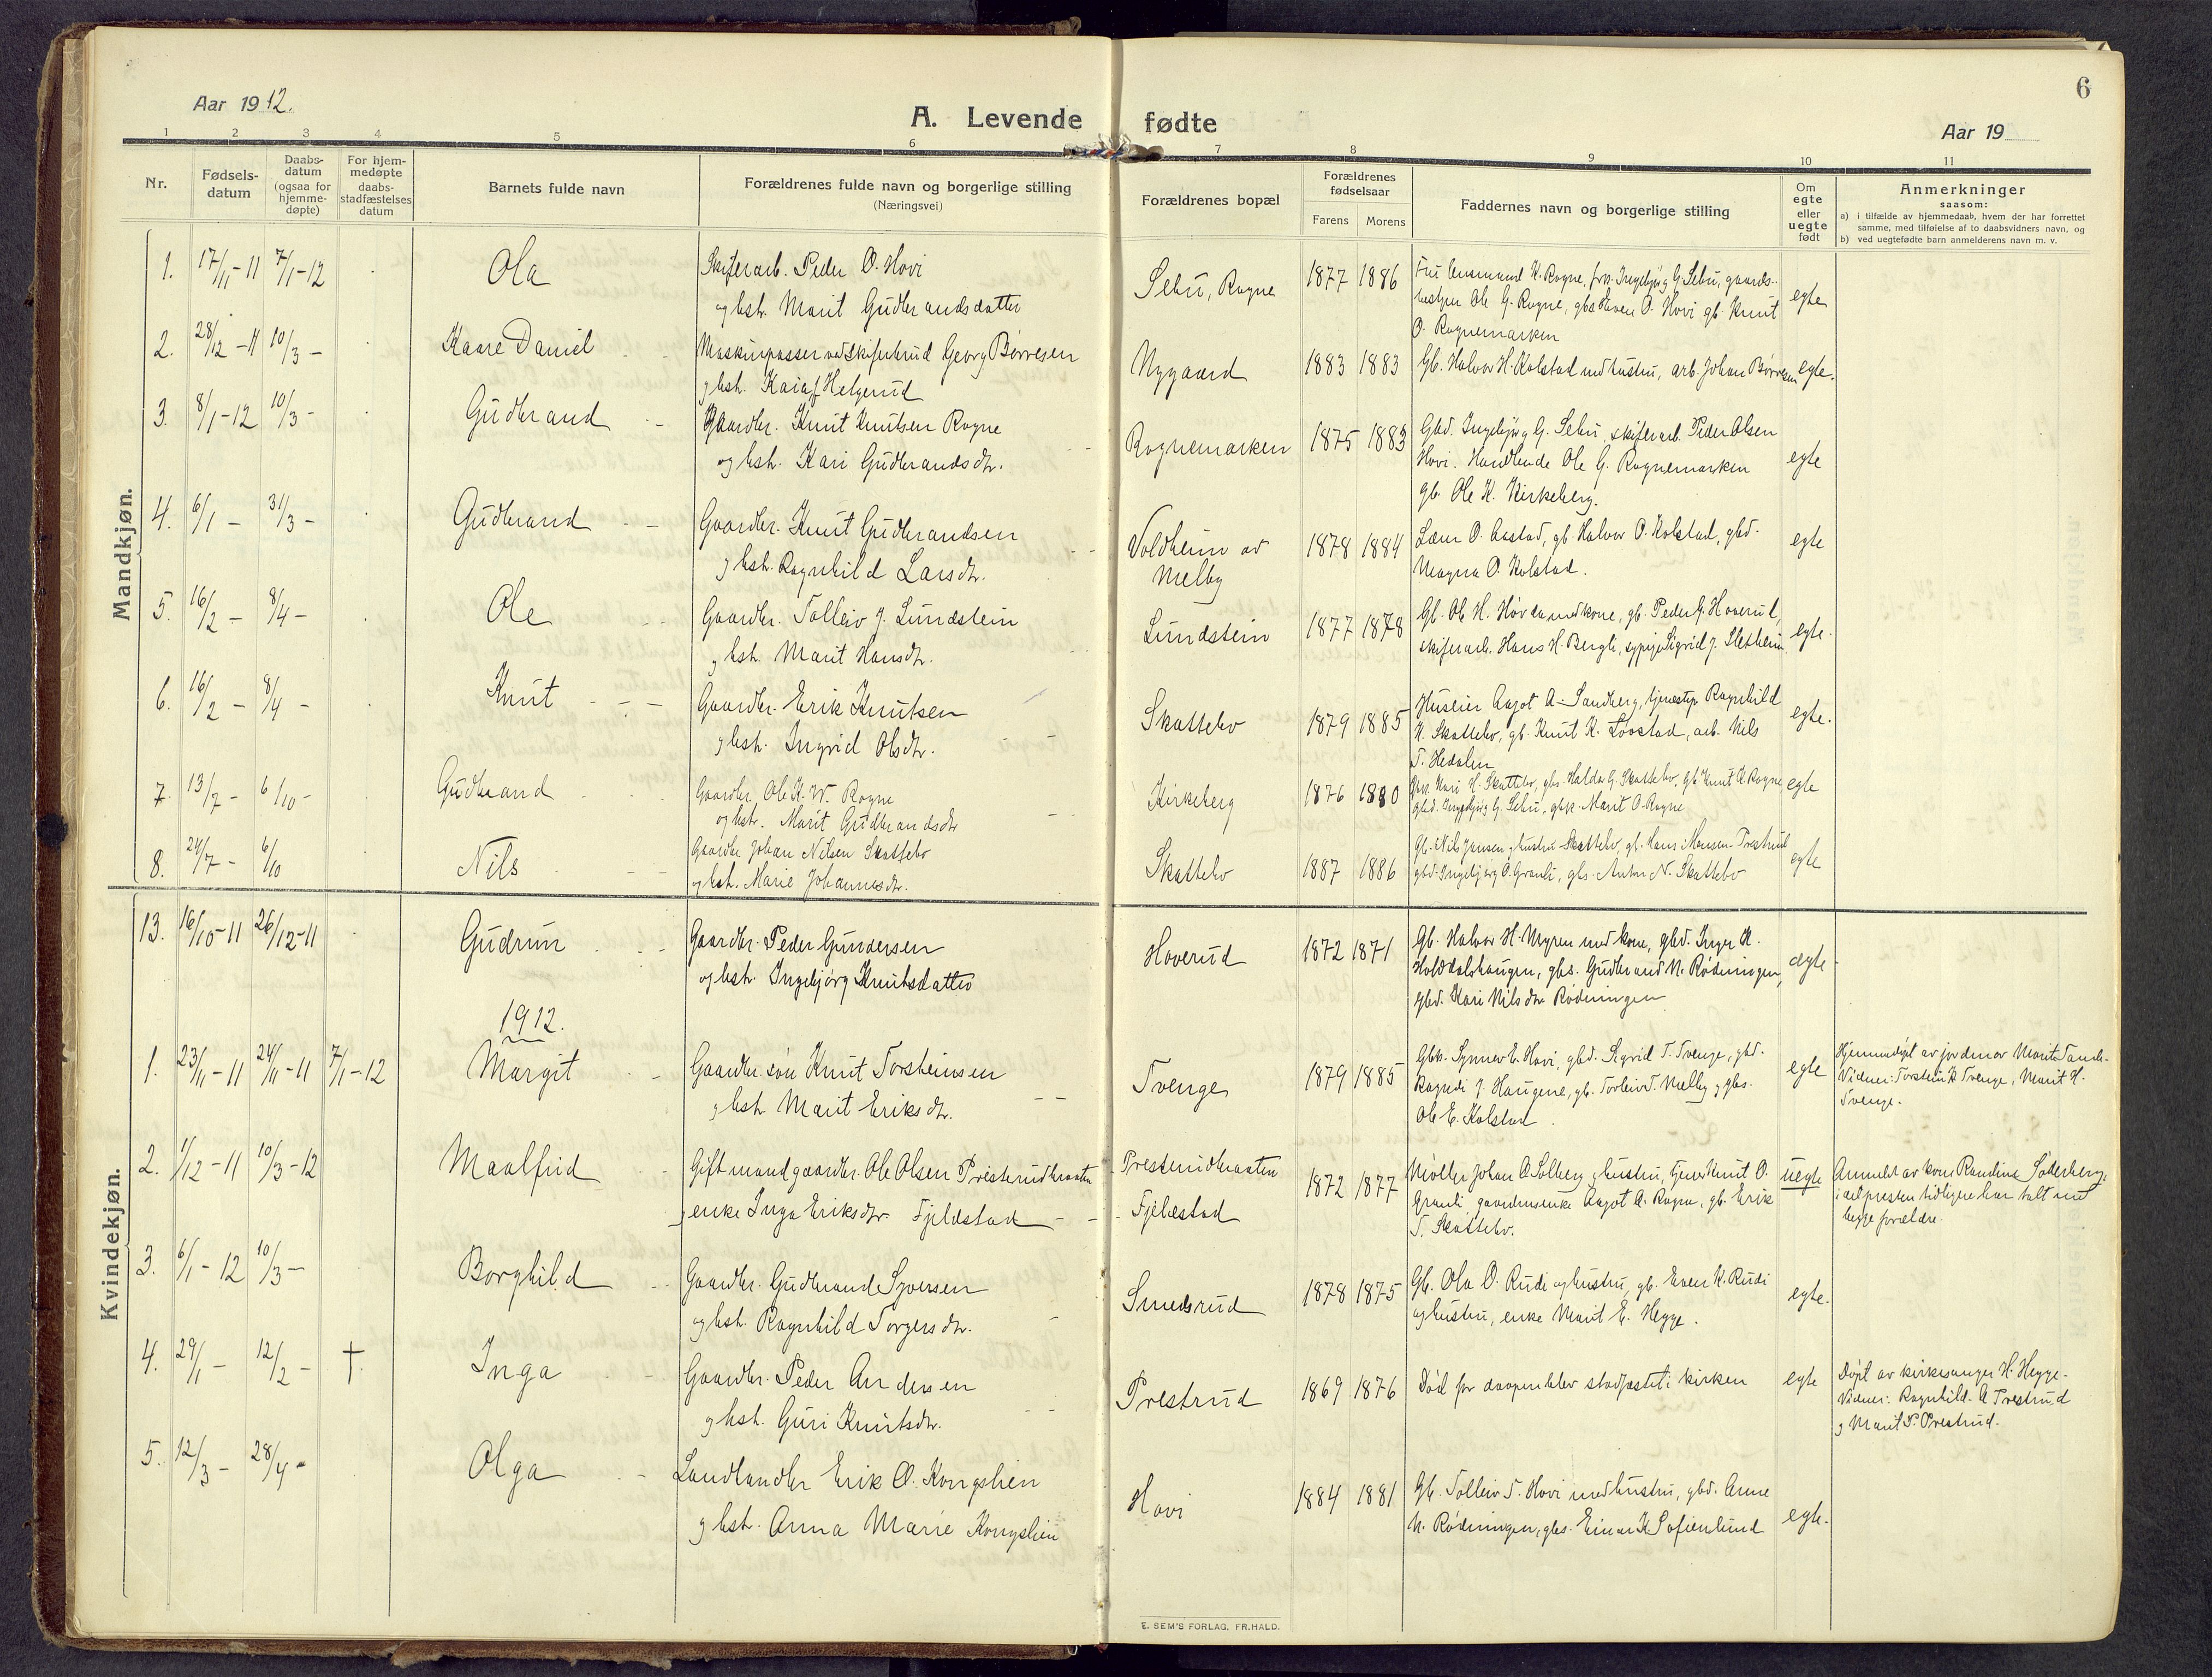 Aar 1912.
A. Levende fødte
Aar 19
6
1 2 3 4 5 6 7 8 9 10 11
Nr.
Fødsels-datum
Daabs-datum (ogsaa for hjemme-døpte)
For hjem-medøpte daabs-stadfæstelses datum
Barnets fulde navn
Forældrenes fulde navn og borgerlige stilling (Næringsvei)
Forældrenes bopæl
Forældrenes fødselsaar
Farens Morens
Faddernes navn og borgerlige stilling
Om egte eller uegte født
Anmerkninger
saasom:
a) i tilfælde av hjemmedaab, hvem der har forrettet samme, med tilføielse af to daabsvidners navn, og
b) ved uegtefødte barn anmelderens navn m. v.
Mandkjøn.
1. 17/11-11 7/1-12 Ola Skiferarb. Peder O. Hovi Sebu, Rogne 1877 1886 K. Rogne, frk. Ingebjørg G. Sebu, gaards- egte
og hstr. Marit Gudbrandsdatter bestyrer Ole G. Rogne, gbs. O. Hovi gb. Knut
O. Rognemarken
2. 28/12-11 10/3- Kaare Daniel Maskinpasser ved skiferbrud Georg Børresen Nygaard 1883 1883 Gb. Halvor H. Kolstad med hustru, arb. Johan Børresen egte.
og hst. Kaia f. Helgerud
3. 8/1-12 10/3- Gudbrand Gaardbr. Knut Knutsen Rogne Rognemarken 1875 1883 Gbd. Ingebjørg G. Sebu, skiferarb. Peder Olsen egte
og hst. Kari Gudbrandsdtr. Hovi. Handlende Ole G. Rognemarken
gb. Ole K. Kirkeberg.
4. 6/1- 31/3- Gudbrand Gaardbr. Knut Gudbrandsen Voldheim av 1878 1884 Lærer O. Aastad, gb. Halvor O. Kolstad, gbd. egte
og hst. Ragnhild Larsdtr. Melby Magna O. Kolstad.
5. 16/2- 8/4- Ole Gaardbr. Tolleiv J. Lundstein Lundstein 1877 1878 Gb. Ole H. Høvda med kone, gb. Peder G. Hoverud, egte.
og hst. Marit Hansdtr. skiferarb. Hans H. Bergli, sypige Sigrid J. Sletheim
6. 16/2- 8/4- Knut Gaardbr. Erik Knutsen Skattebo 1879 1885 Huseier Aagot A. Sandberg, tjenestep. Ragnhild egte.
og hst. Ingrid Olsdtr. K. Skattebo, gb. Knut K. Lovstad, arb. Nils
T. Hedalen
7. 13/7- 6/10- Gudbrand Gaardbr. Ole K. W. Rogne Kirkeberg 1876 1880 Gbk. Kari H. Skattebo, gbs. Haldor G. Skattebo, gb. Knut K. Rogne egte
og hstr. Marit Gudbrandsdtr gbd. Ingebjørg G. Sebu, gbk. Marit O. Rogne
8. 24/7- 6/10 Nils Gaardbr Johan Nilsen Skattebo Skattebo 1887 1886 Gb. Nils Jansen og hustru Skattebo, gb. Hans Monsen Prestrud egte
og hst. Marie Johannesdtr. gbd. Ingebjørg O. Granli, gbs. Anton N. Skattebo
Kvindekjøn.
13. 16/10-11 26/12-11 Gudrun Gaardbr. Peder Gundersen Hoverud 1872 1871 Gb. Halvor H. Myren med kone, gbd. Inger K. ægte
og hstr. Ingebjørg Knutsdatter Holdalshaugen, gbs. Gudbrand N. Rødningen,
gbd. Kari Nilsdtr. Rødningen
1912.
1. 23/11-11 24/11-11 7/1-12 Margit Gaardbr. søn Knut Torsteinsen Tvenge 1879 1885 Gbk. Synnev E. Hovi, gbd. Sigrid T. Tvenge, gbd. egte Hjemmedøpt av jordmor Marit
og hst Marit Eriksdtr. Ragndi J. Haugene, gb. Torleiv T. Melby og gbs. Vidner: Torstein K Tvenge, Marit H.
Ole E. Kolstad Tvenge.
2. 1/12-11 10/3-12 Maalfrid Gift mand gaardbr. Ole Olsen Presterudbraaten Presterudbraaten 1872 1877 Møller Johan O. Solberg og hustru, Knut O. uegte Anmeldt av kone Randine Søderberg,
og enke Inga Eriksdtr. Fjeldstad Fjeldstad Granli gaardmandsenke Aagot A. Rogne, gb. Erik idet presten tidligere har talt med
T. Skattebo. begge forældre.
3. 6/1-12 10/3- Borghild Gaardbr. Gudbrand Syversen Smedsrud 1878 1875 Gb. Ola O. Rudi og hustru, gb. Even K. Rudi egte.
og hst. Ragnhild Torgersdtr. og hustru, enke Marit E. Hegge.
4. 29/1- 12/2- † Inga Gaardbr. Peder Andersen Prestrud 1869 1876 Død før daapen blev stadfæstet i kirken egte Døpt av kirkesanger H. Hegge.
og hst. Guri Knutsdtr. Vidner: Ragnhild A Prestrud
og Marit P. Prestrud.
5. 12/3- 28/4- Olga Landhandler Erik O. Kongslien Hovi 1884 1881 Gb. Tolleiv T. Hovi med hustru, gbd. Anne egte.
og hst. Anna Marie Kongslien N. Rødningen, gbs. Einar K. Sofienlund
E. SEM'S FORLAG, FR.HALD.